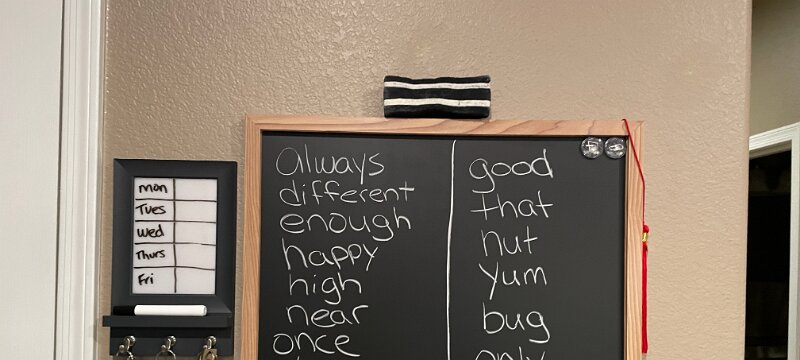 mon
Tues
Wed
Thurs
Fri
always
different
enough
happy
high
near
once
good
that
nut
yum
bug
only